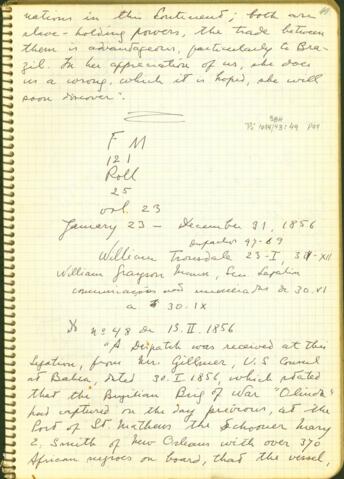 nations in this Continent; both are
slave-holding powers, the trade between
them is advantageous, particularly to Bra-
zil. In her appreciation of us, she does
us a wrong, which it is hoped, she will
soon discover".
F M
121
Roll
25
vol. 23
January 23 – December 31, 1856
William Trousdale 23-I, 31-XII
William Grayson Mann, Sec. Legation
comunicações não numeradas de 30.VI
a 30.IX
nº 48 de 15.II.1856
"A Dispatch was received at this
Legation, from Mr. Gillmer, U.S Consul
at Bahia, dated 30.I.1856, which stated
that the Brazilian Brig of War "Olinda"
had captured on the day previous, at the
Port of St. Matheus the Schooner Mary
E. Smith of New Orleans with over 370
African negroes on board, that the vessel,